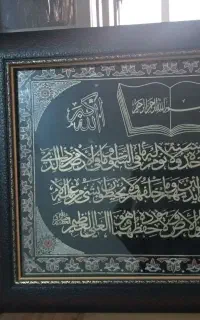 الله أكبر
بسم الله الرحمن الرحيم
سنة ولا نوم له ما في السموات وما في الأرض من ذا الذي
أيديهم وما خلفهم ولا يحيطون بشيء من علمه إلا
والأرض ولا يؤده حفظهما وهو العلي العظيم